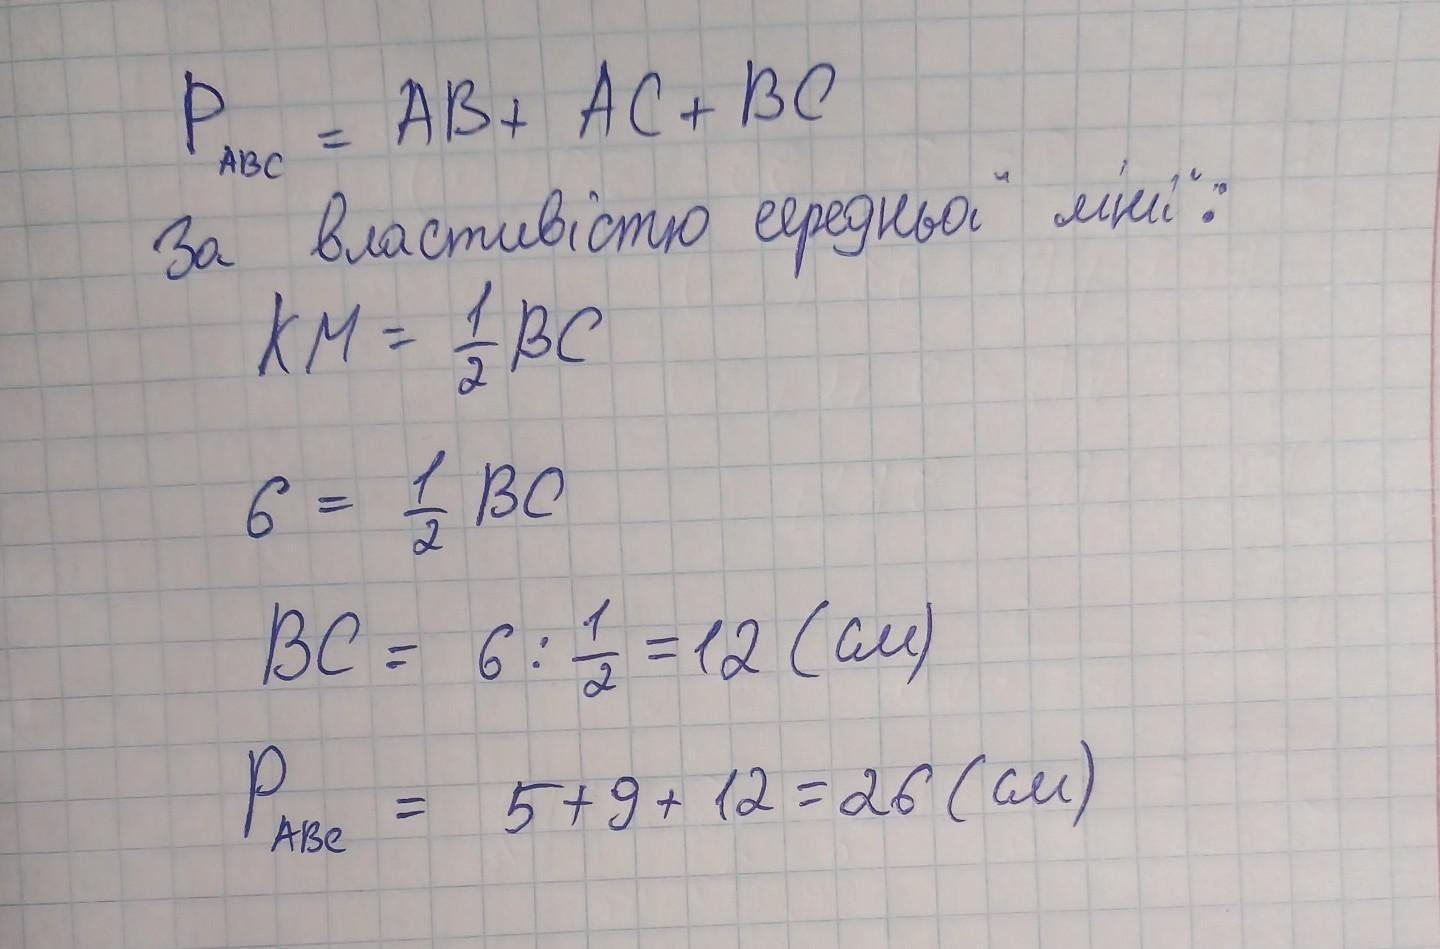 P_ABC = AB + AC + BC
За властивістю середньої лінії:
KM = 1/2 BC
6 = 1/2 BC
BC = 6 : 1/2 = 12 (см)
P_ABC = 5 + 9 + 12 = 26 (см)